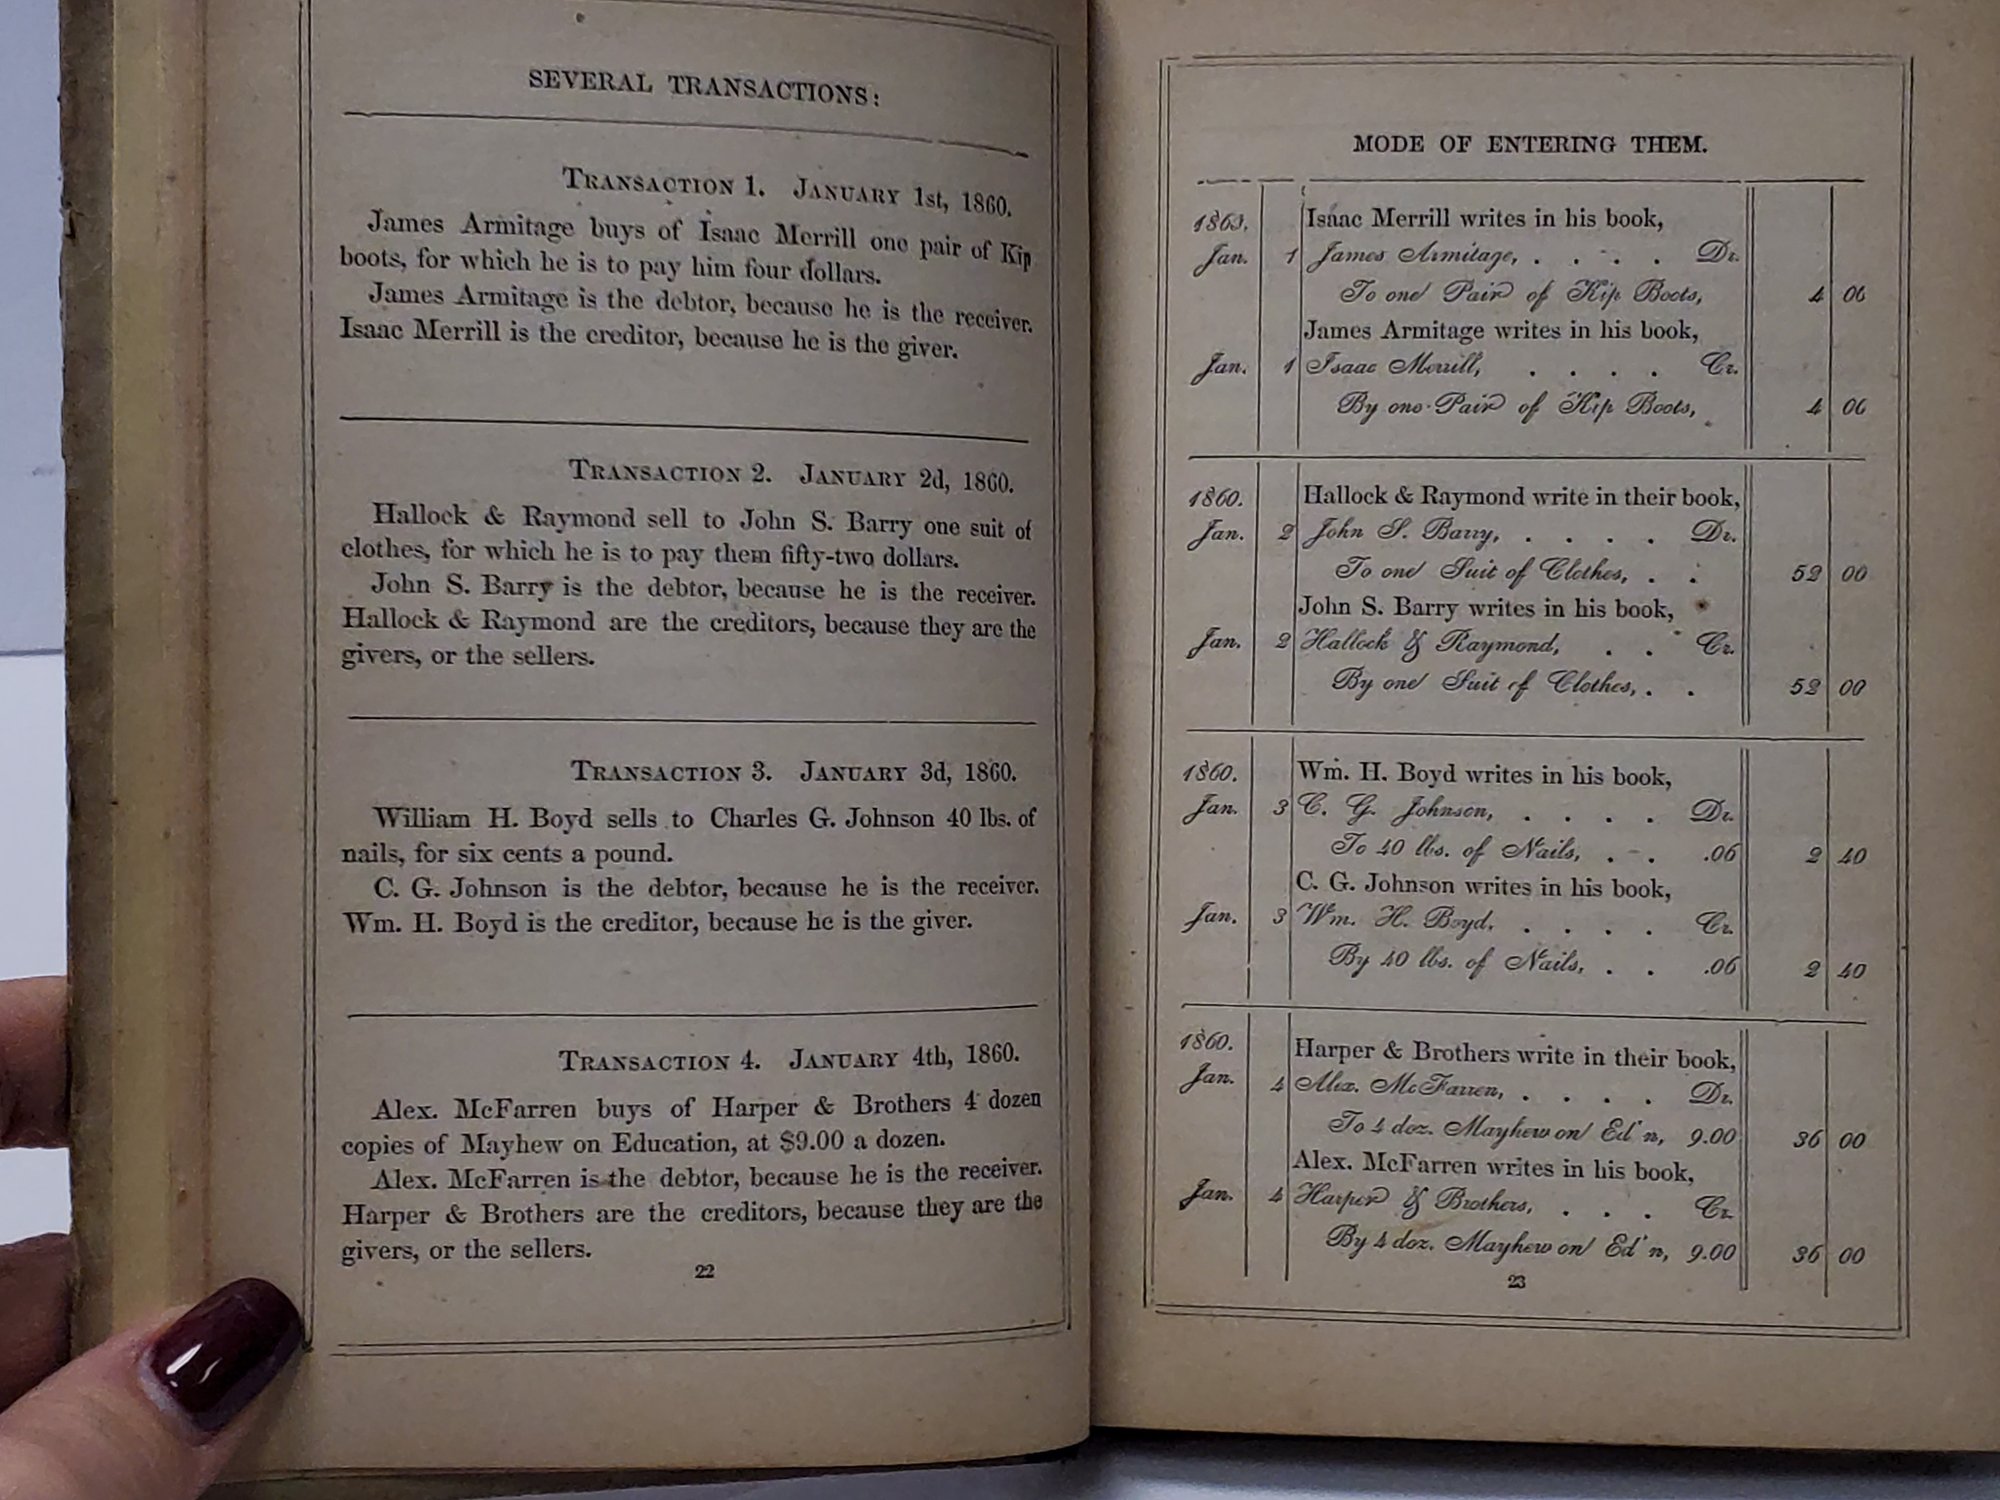 SEVERAL TRANSACTIONS:
TRANSACTION 1. JANUARY 1st, 1860.
James Armitage buys of Isaac Merrill one pair of Kip
boots, for which he is to pay him four dollars.
James Armitage is the debtor, because he is the receiver.
Isaac Merrill is the creditor, because he is the giver.
TRANSACTION 2. JANUARY 2d, 1860.
Hallock & Raymond sell to John S. Barry one suit of
clothes, for which he is to pay them fifty-two dollars.
John S. Barry is the debtor, because he is the receiver.
Hallock & Raymond are the creditors, because they are the
givers, or the sellers.
TRANSACTION 3. JANUARY 3d, 1860.
William H. Boyd sells to Charles G. Johnson 40 lbs. of
nails, for six cents a pound.
C. G. Johnson is the debtor, because he is the receiver.
Wm. H. Boyd is the creditor, because he is the giver.
TRANSACTION 4. JANUARY 4th, 1860.
Alex. McFarren buys of Harper & Brothers 4 dozen
copies of Mayhew on Education, at $9.00 a dozen.
Alex. McFarren is the debtor, because he is the receiver.
Harper & Brothers are the creditors, because they are the
givers, or the sellers.
22
MODE OF ENTERING THEM.
1860. Isaac Merrill writes in his book,
Jan. 1 James Armitage, . . . . Dr.
To one Pair of Kip Boots, 4 00
James Armitage writes in his book,
Jan. 1 Isaac Merrill, . . . . Cr.
By one Pair of Kip Boots, 4 00
1860. Hallock & Raymond write in their book,
Jan. 2 John S. Barry, . . . . Dr.
To one Suit of Clothes, . . 52 00
John S. Barry writes in his book,
Jan. 2 Hallock & Raymond, . . Cr.
By one Suit of Clothes, . . 52 00
1860. Wm. H. Boyd writes in his book,
Jan. 3 C. G. Johnson, . . . . Dr.
To 40 lbs. of Nails, . . .06 2 40
C. G. Johnson writes in his book,
Jan. 3 Wm. H. Boyd, . . . . Cr.
By 40 lbs. of Nails, . . .06 2 40
1860. Harper & Brothers write in their book,
Jan. 4 Alex. McFarren, . . . . Dr.
To 4 doz. Mayhew on Ed'n, 9.00 36 00
Alex. McFarren writes in his book,
Jan. 4 Harper & Brothers, . . . Cr.
By 4 doz. Mayhew on Ed'n, 9.00 36 00
23